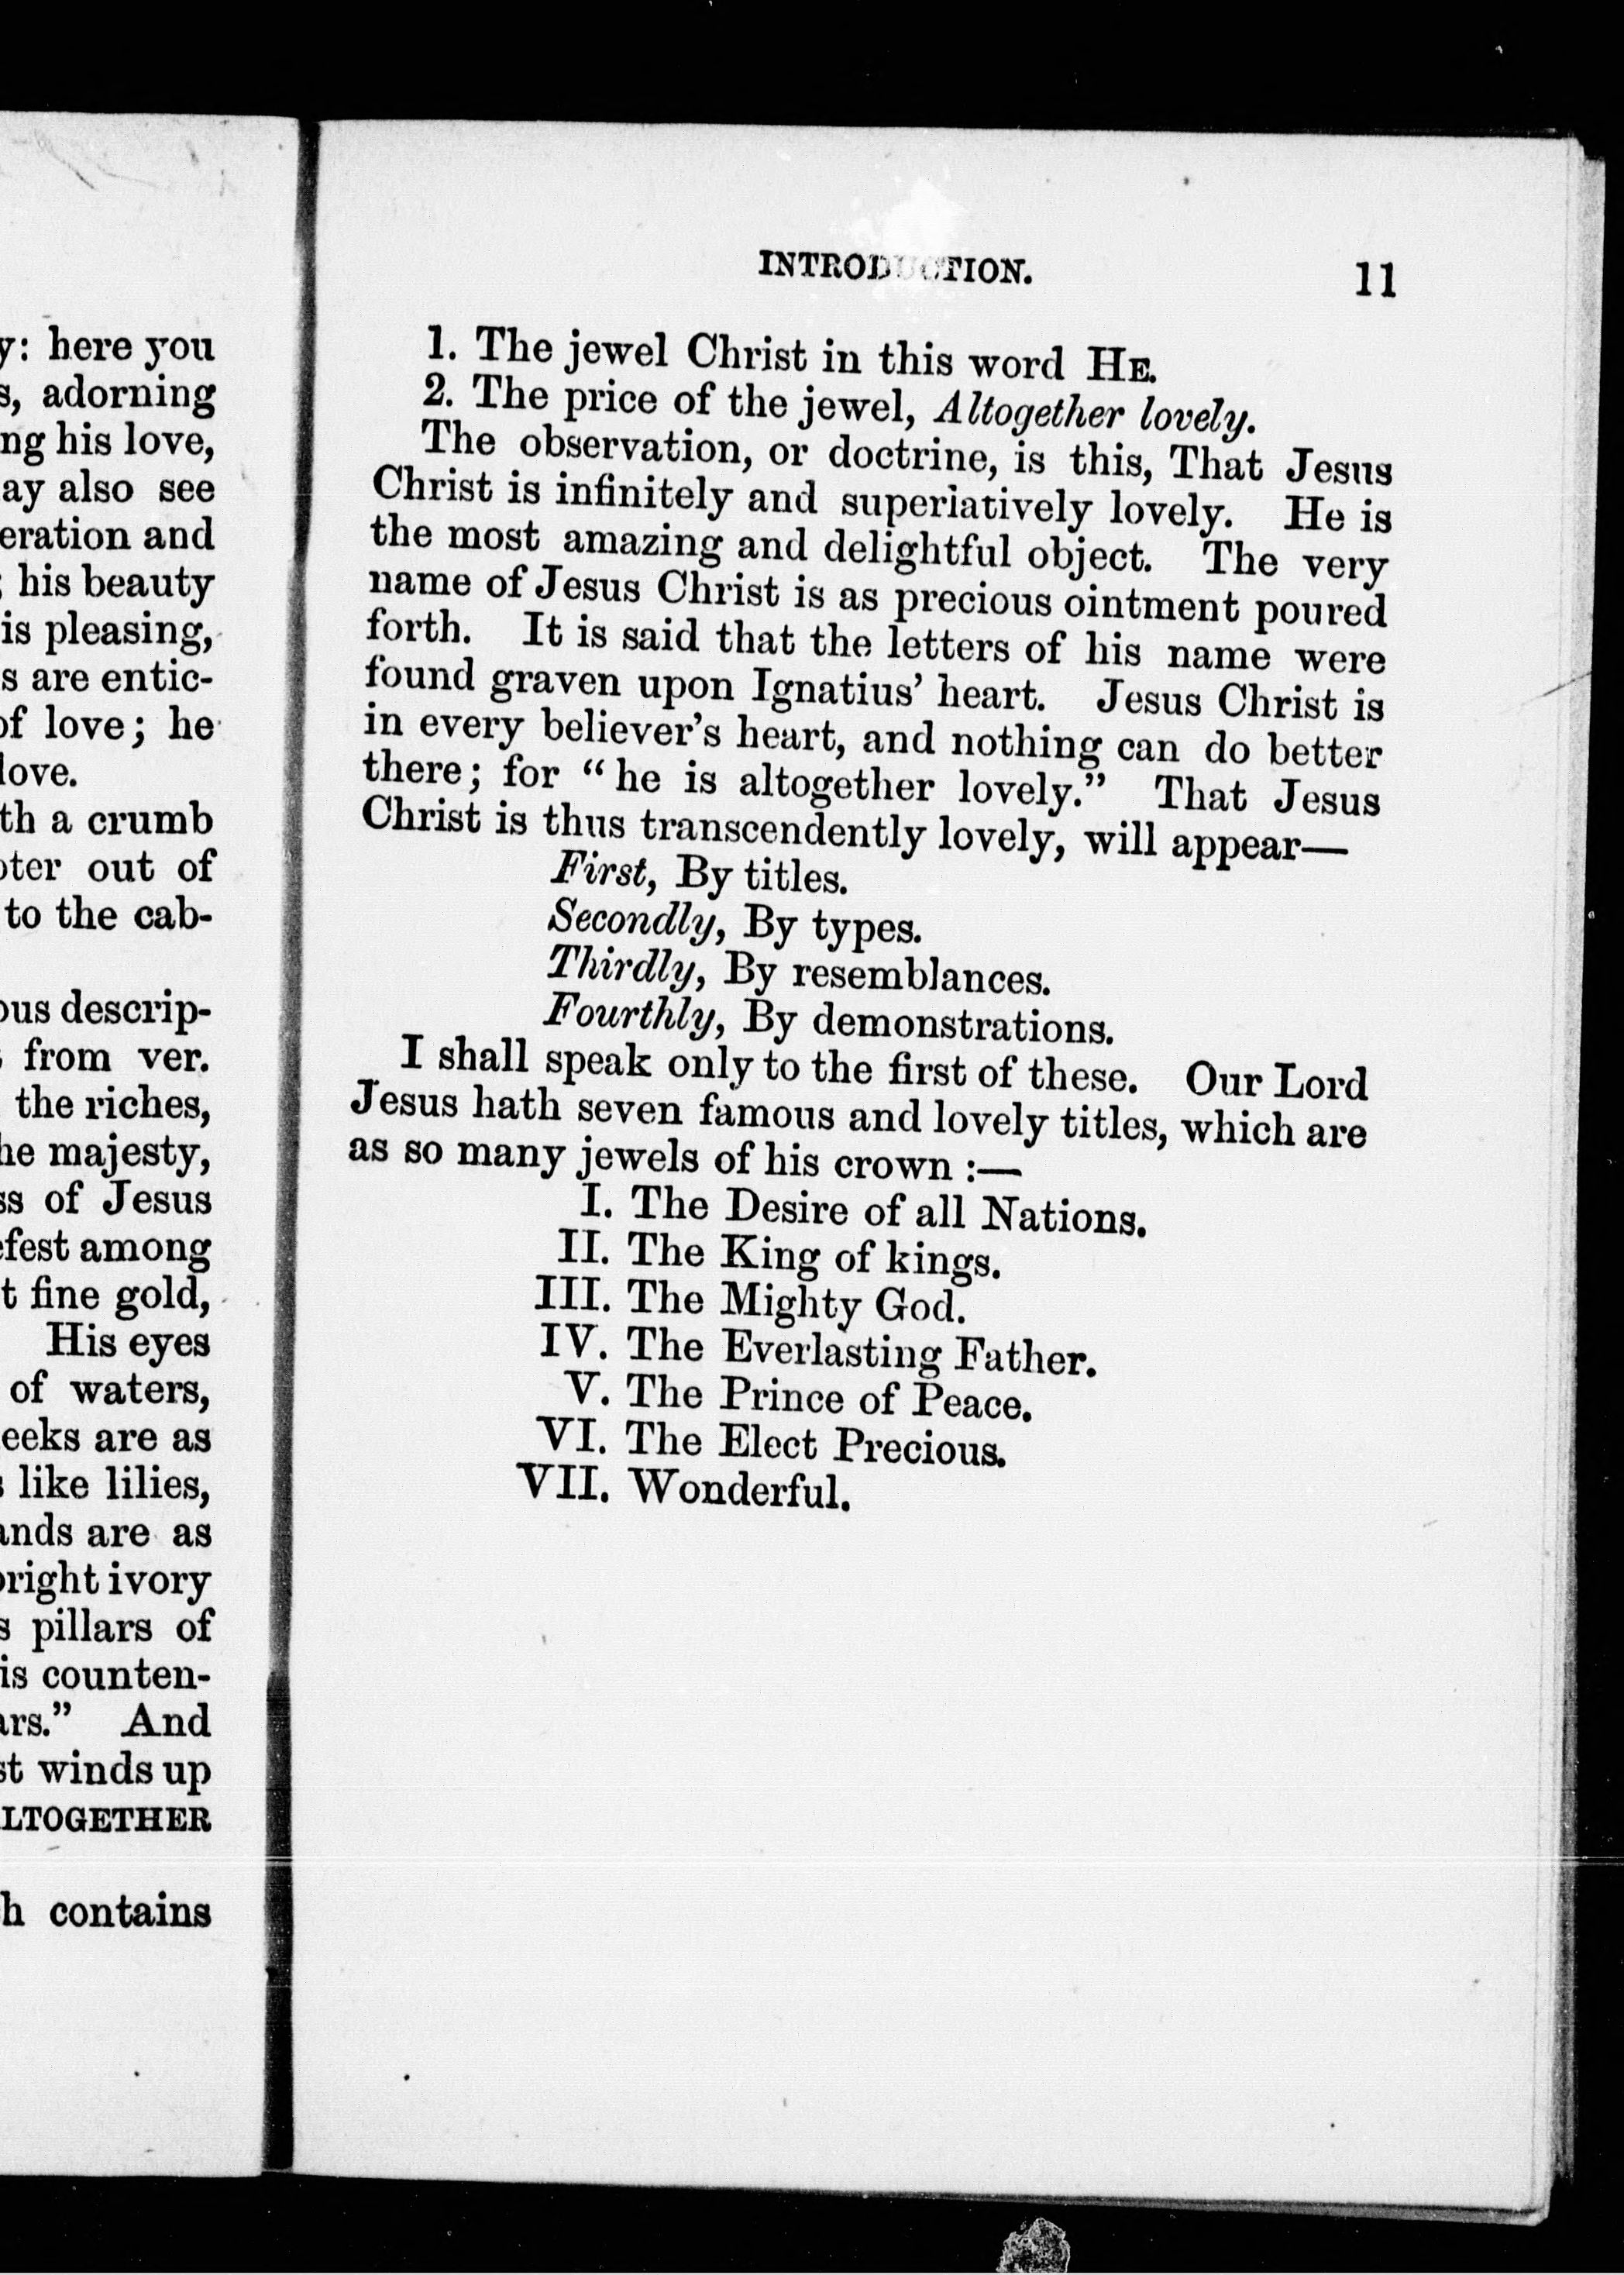 y: here you
s, adorning
ng his love,
ay also see
eration and
; his beauty
is pleasing,
s are entic-
of love; he
love.
th a crumb
pter out of
to the cab-
ous descrip-
from ver.
the riches,
he majesty,
ss of Jesus
efest among
t fine gold,
His eyes
of waters,
eeks are as
s like lilies,
ands are as
bright ivory
s pillars of
is counten-
ars.” And
st winds up
LTOGETHER
h contains
INTRODUCTION. 11
1. The jewel Christ in this word HE.
2. The price of the jewel, Altogether lovely.
The observation, or doctrine, is this, That Jesus
Christ is infinitely and superlatively lovely. He is
the most amazing and delightful object. The very
name of Jesus Christ is as precious ointment poured
forth. It is said that the letters of his name were
found graven upon Ignatius’ heart. Jesus Christ is
in every believer’s heart, and nothing can do better
there; for “he is altogether lovely.” That Jesus
Christ is thus transcendently lovely, will appear—
First, By titles.
Secondly, By types.
Thirdly, By resemblances.
Fourthly, By demonstrations.
I shall speak only to the first of these. Our Lord
Jesus hath seven famous and lovely titles, which are
as so many jewels of his crown :—
I. The Desire of all Nations.
II. The King of kings.
III. The Mighty God.
IV. The Everlasting Father.
V. The Prince of Peace.
VI. The Elect Precious.
VII. Wonderful.